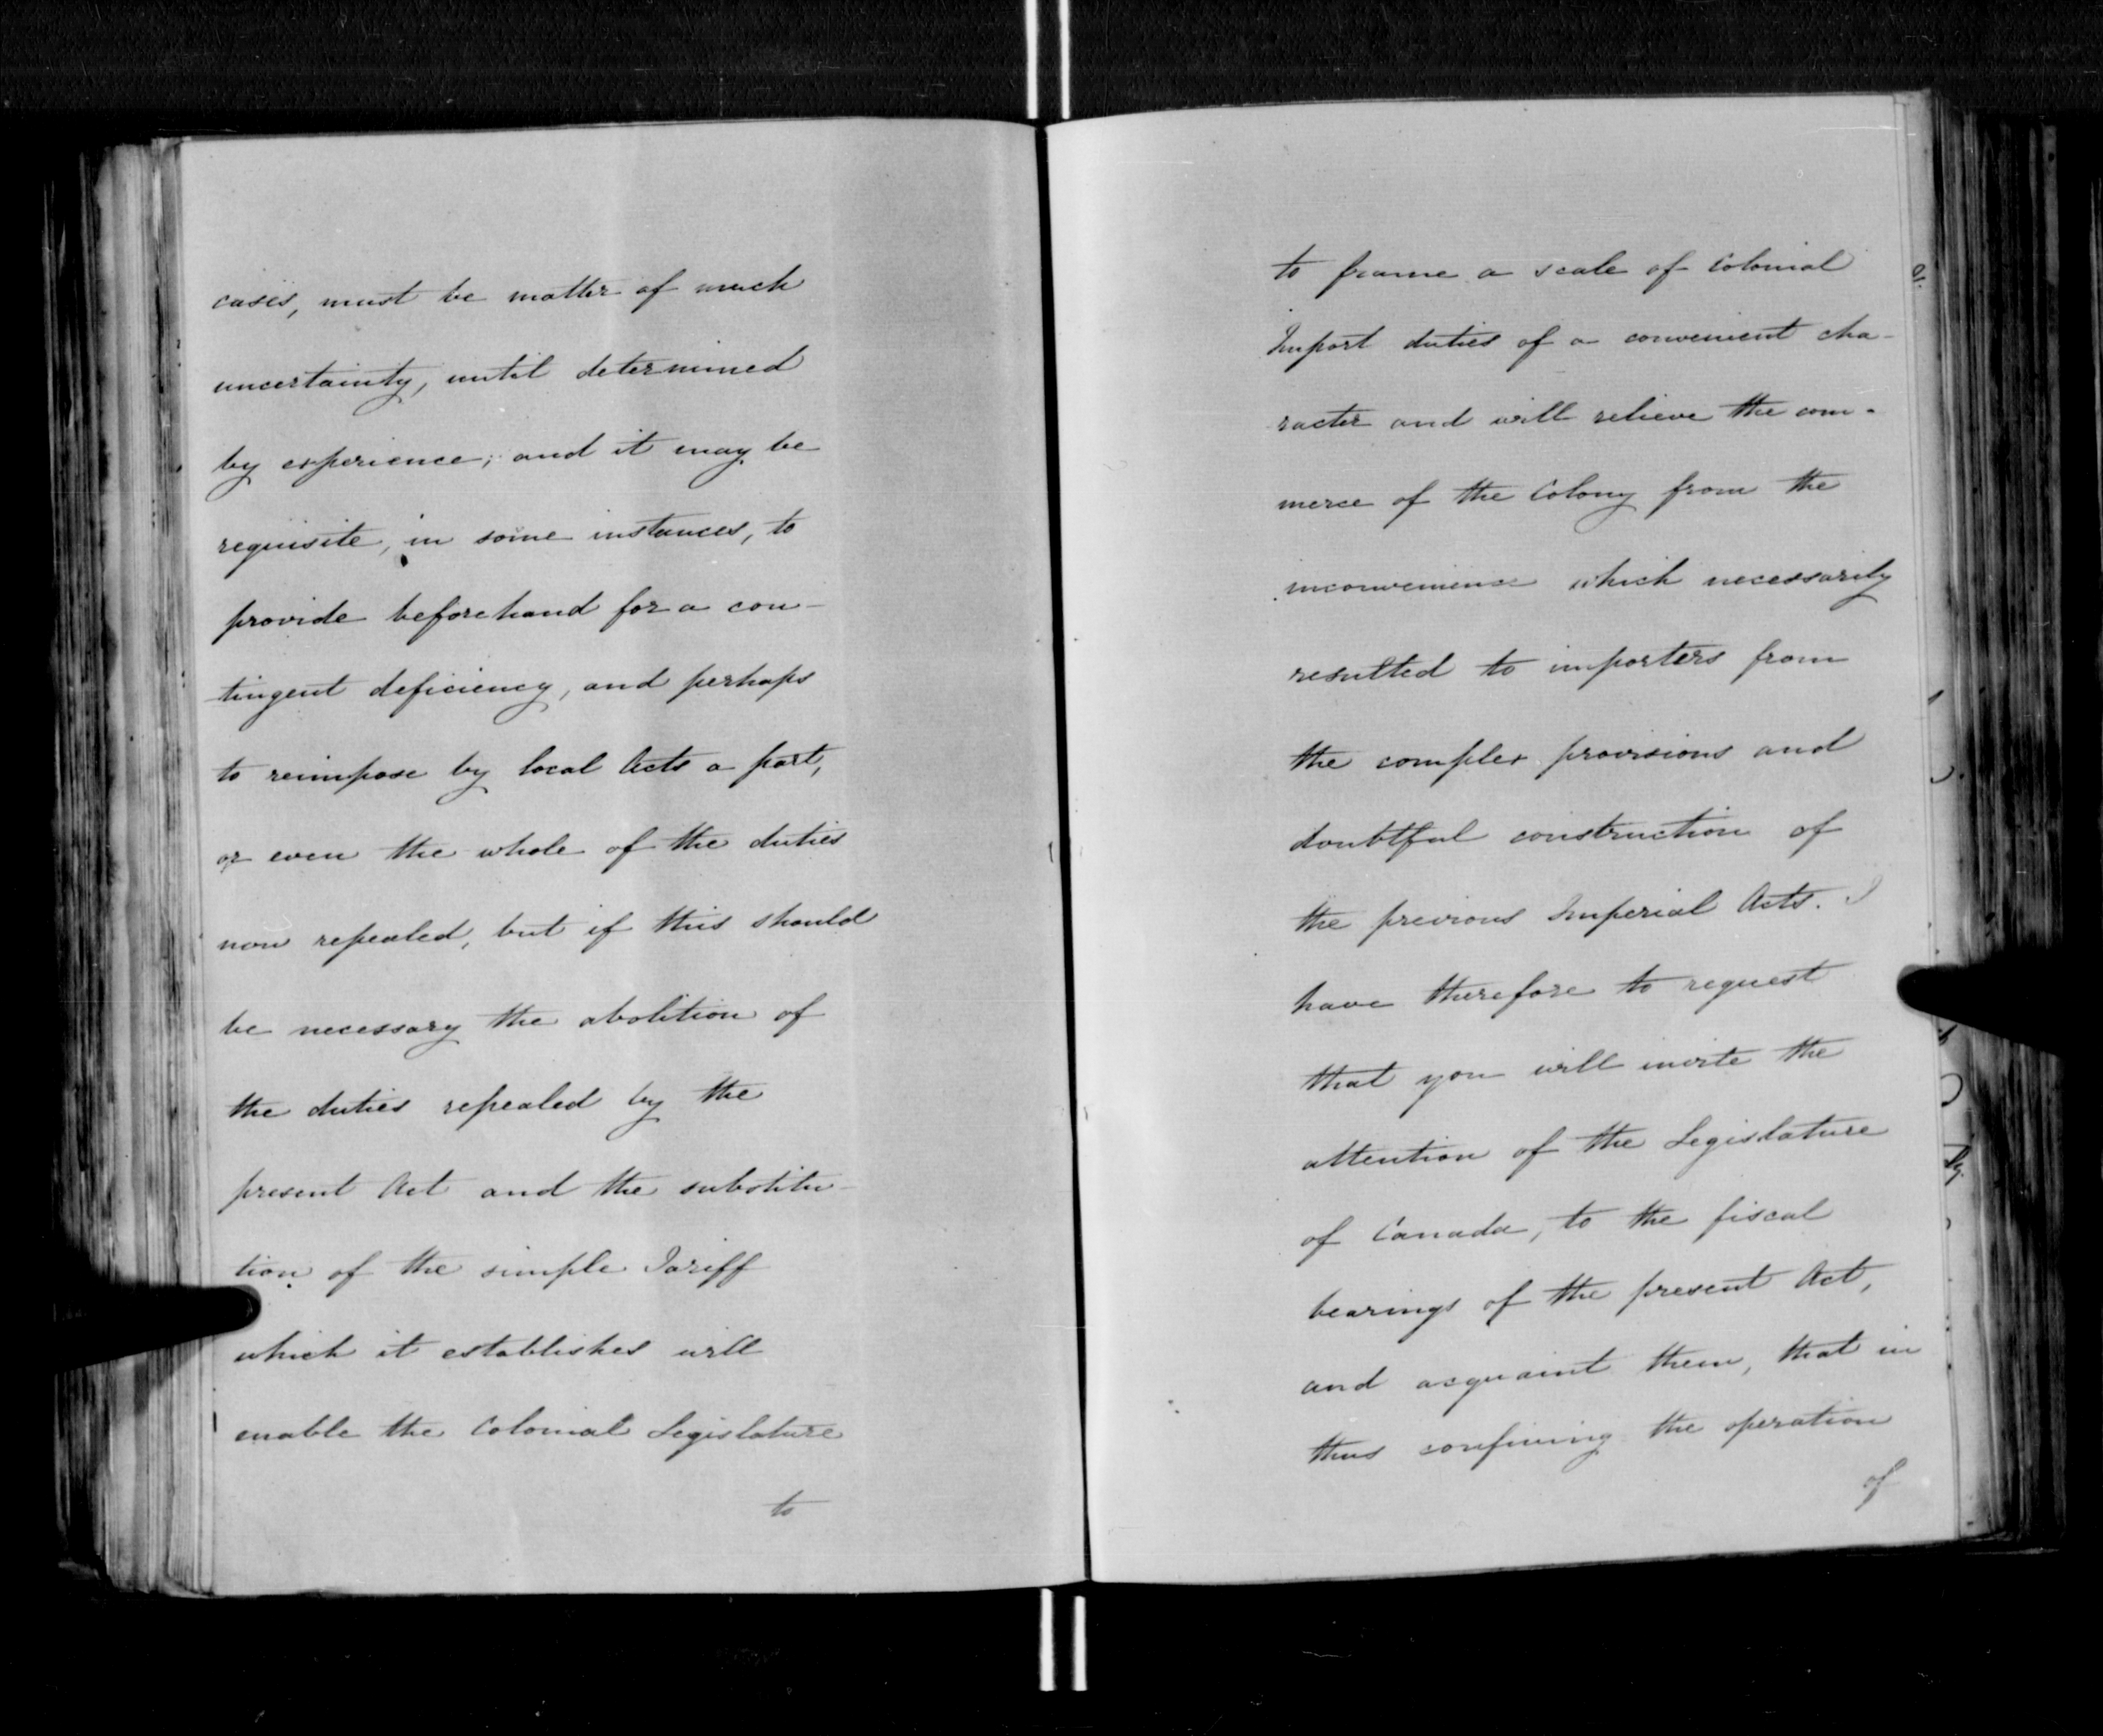 cases, must be matter of much
uncertainty, until determined
by experience; and it may be
requisite, in some instances, to
provide beforehand for a con-
tingent deficiency, and perhaps
to reimpose by local Acts a part,
or even the whole of the duties
now repealed, but if this should
be necessary the abolition of
the duties repealed by the
present Act and the substitu-
tion of the simple Tariff
which it establishes will
enable the Colonial Legislature
to
to frame a scale of Colonial
Import duties of a convenient cha-
racter and will relieve the com-
merce of the Colony from the
inconvenience which necessarily
resulted to importers from
the complex provisions and
doubtful construction of
the previous Imperial Acts. I
have therefore to request
that you will invite the
attention of the Legislature
of Canada, to the fiscal
bearings of the present Act,
and acquaint them, that in
thus confining the operation
of